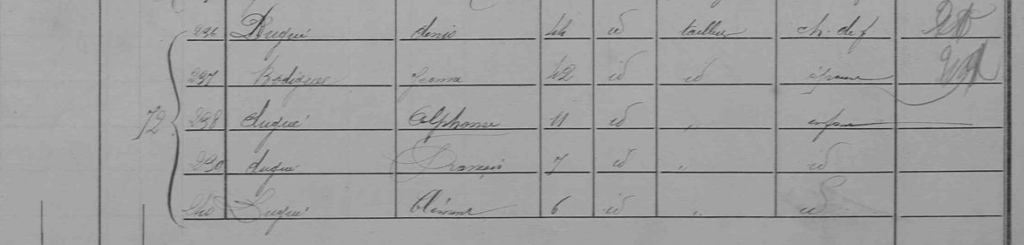 236 Dugué Denis 44 id tailleur ch. de f
237 Jeanne 42 id id épouse
72
238 dugué Alphonse 11 id " enfant
239 dugué François 7 id " id
240 Dugué 6 id " id